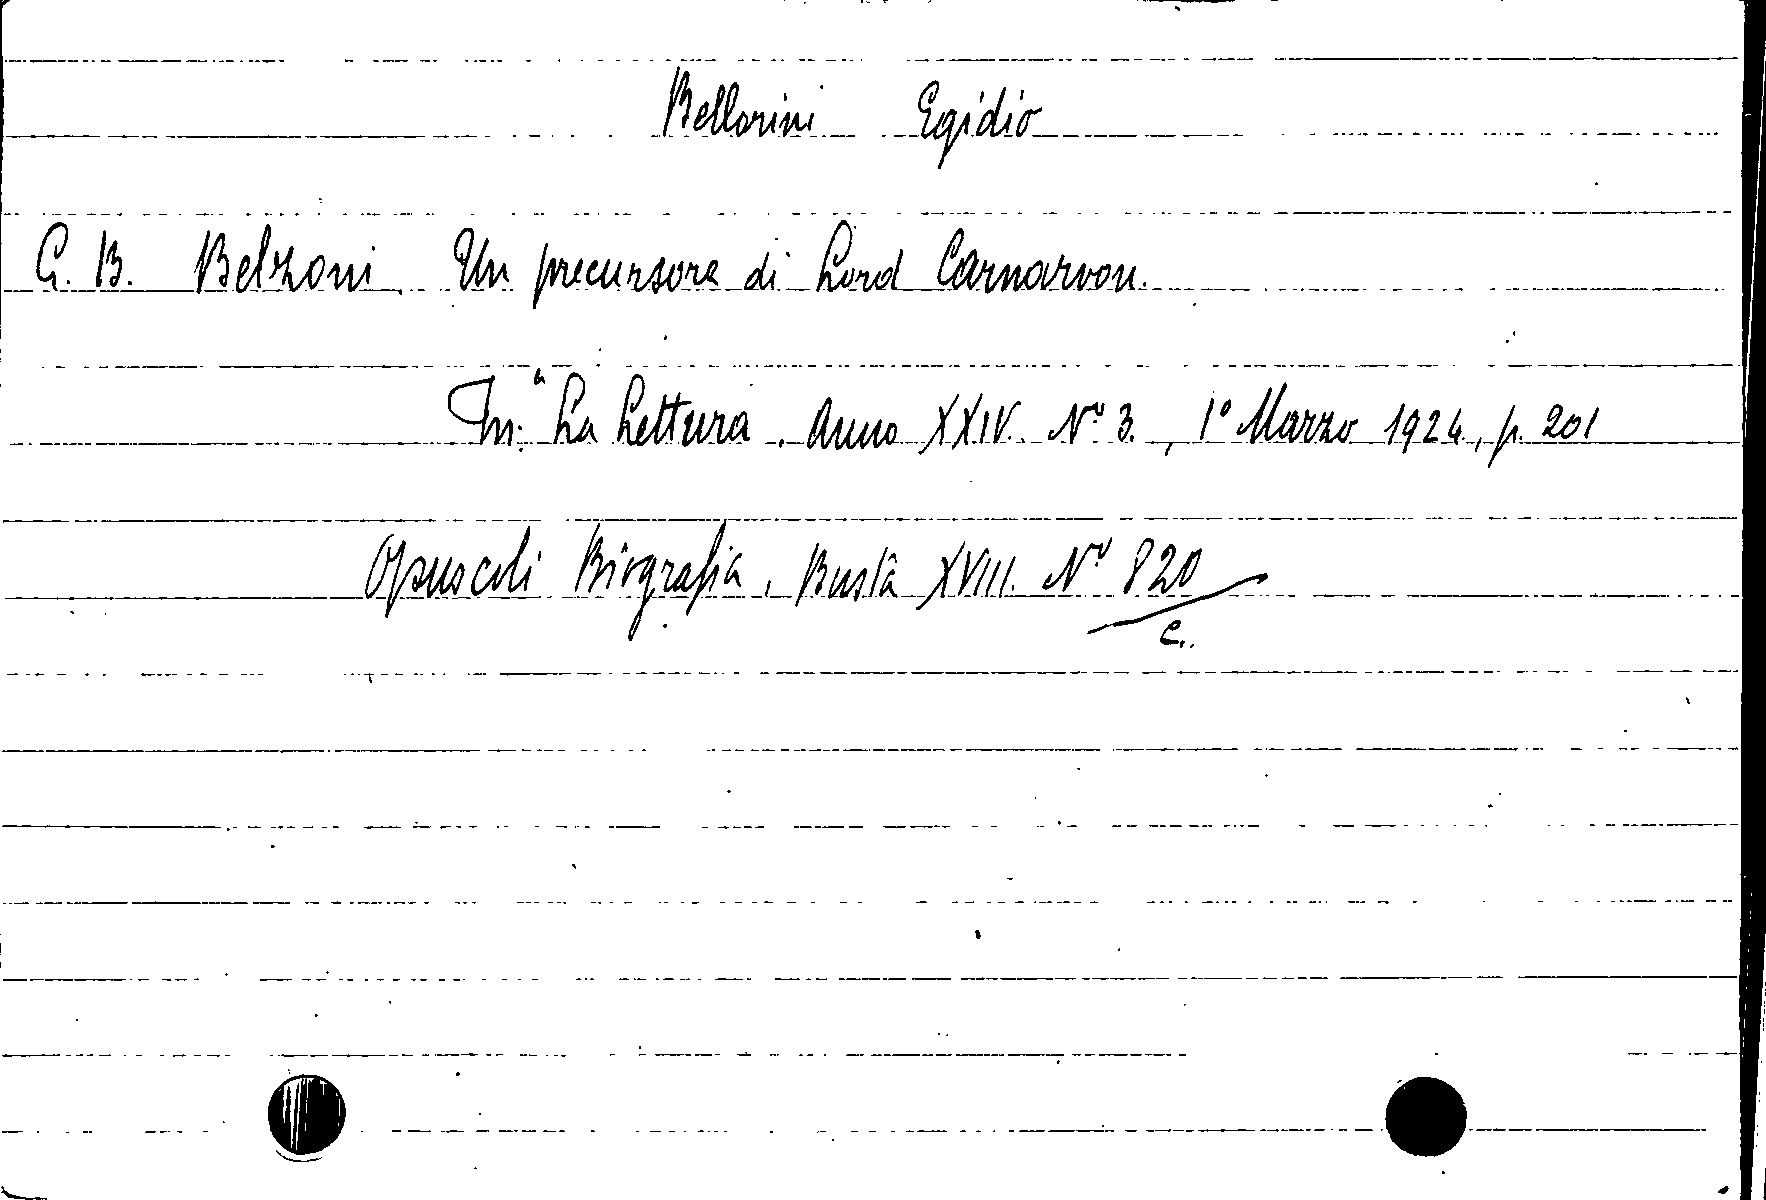 Bellorini Egidio
G. B. Belzoni. Un precursore di Lord Carnarvon.
In: "La Lettura. Anno XXIV. Nº 3., 1º Marzo 1924, p. 201
Opuscoli Biografia. Busta XVIII. Nº 820
c.